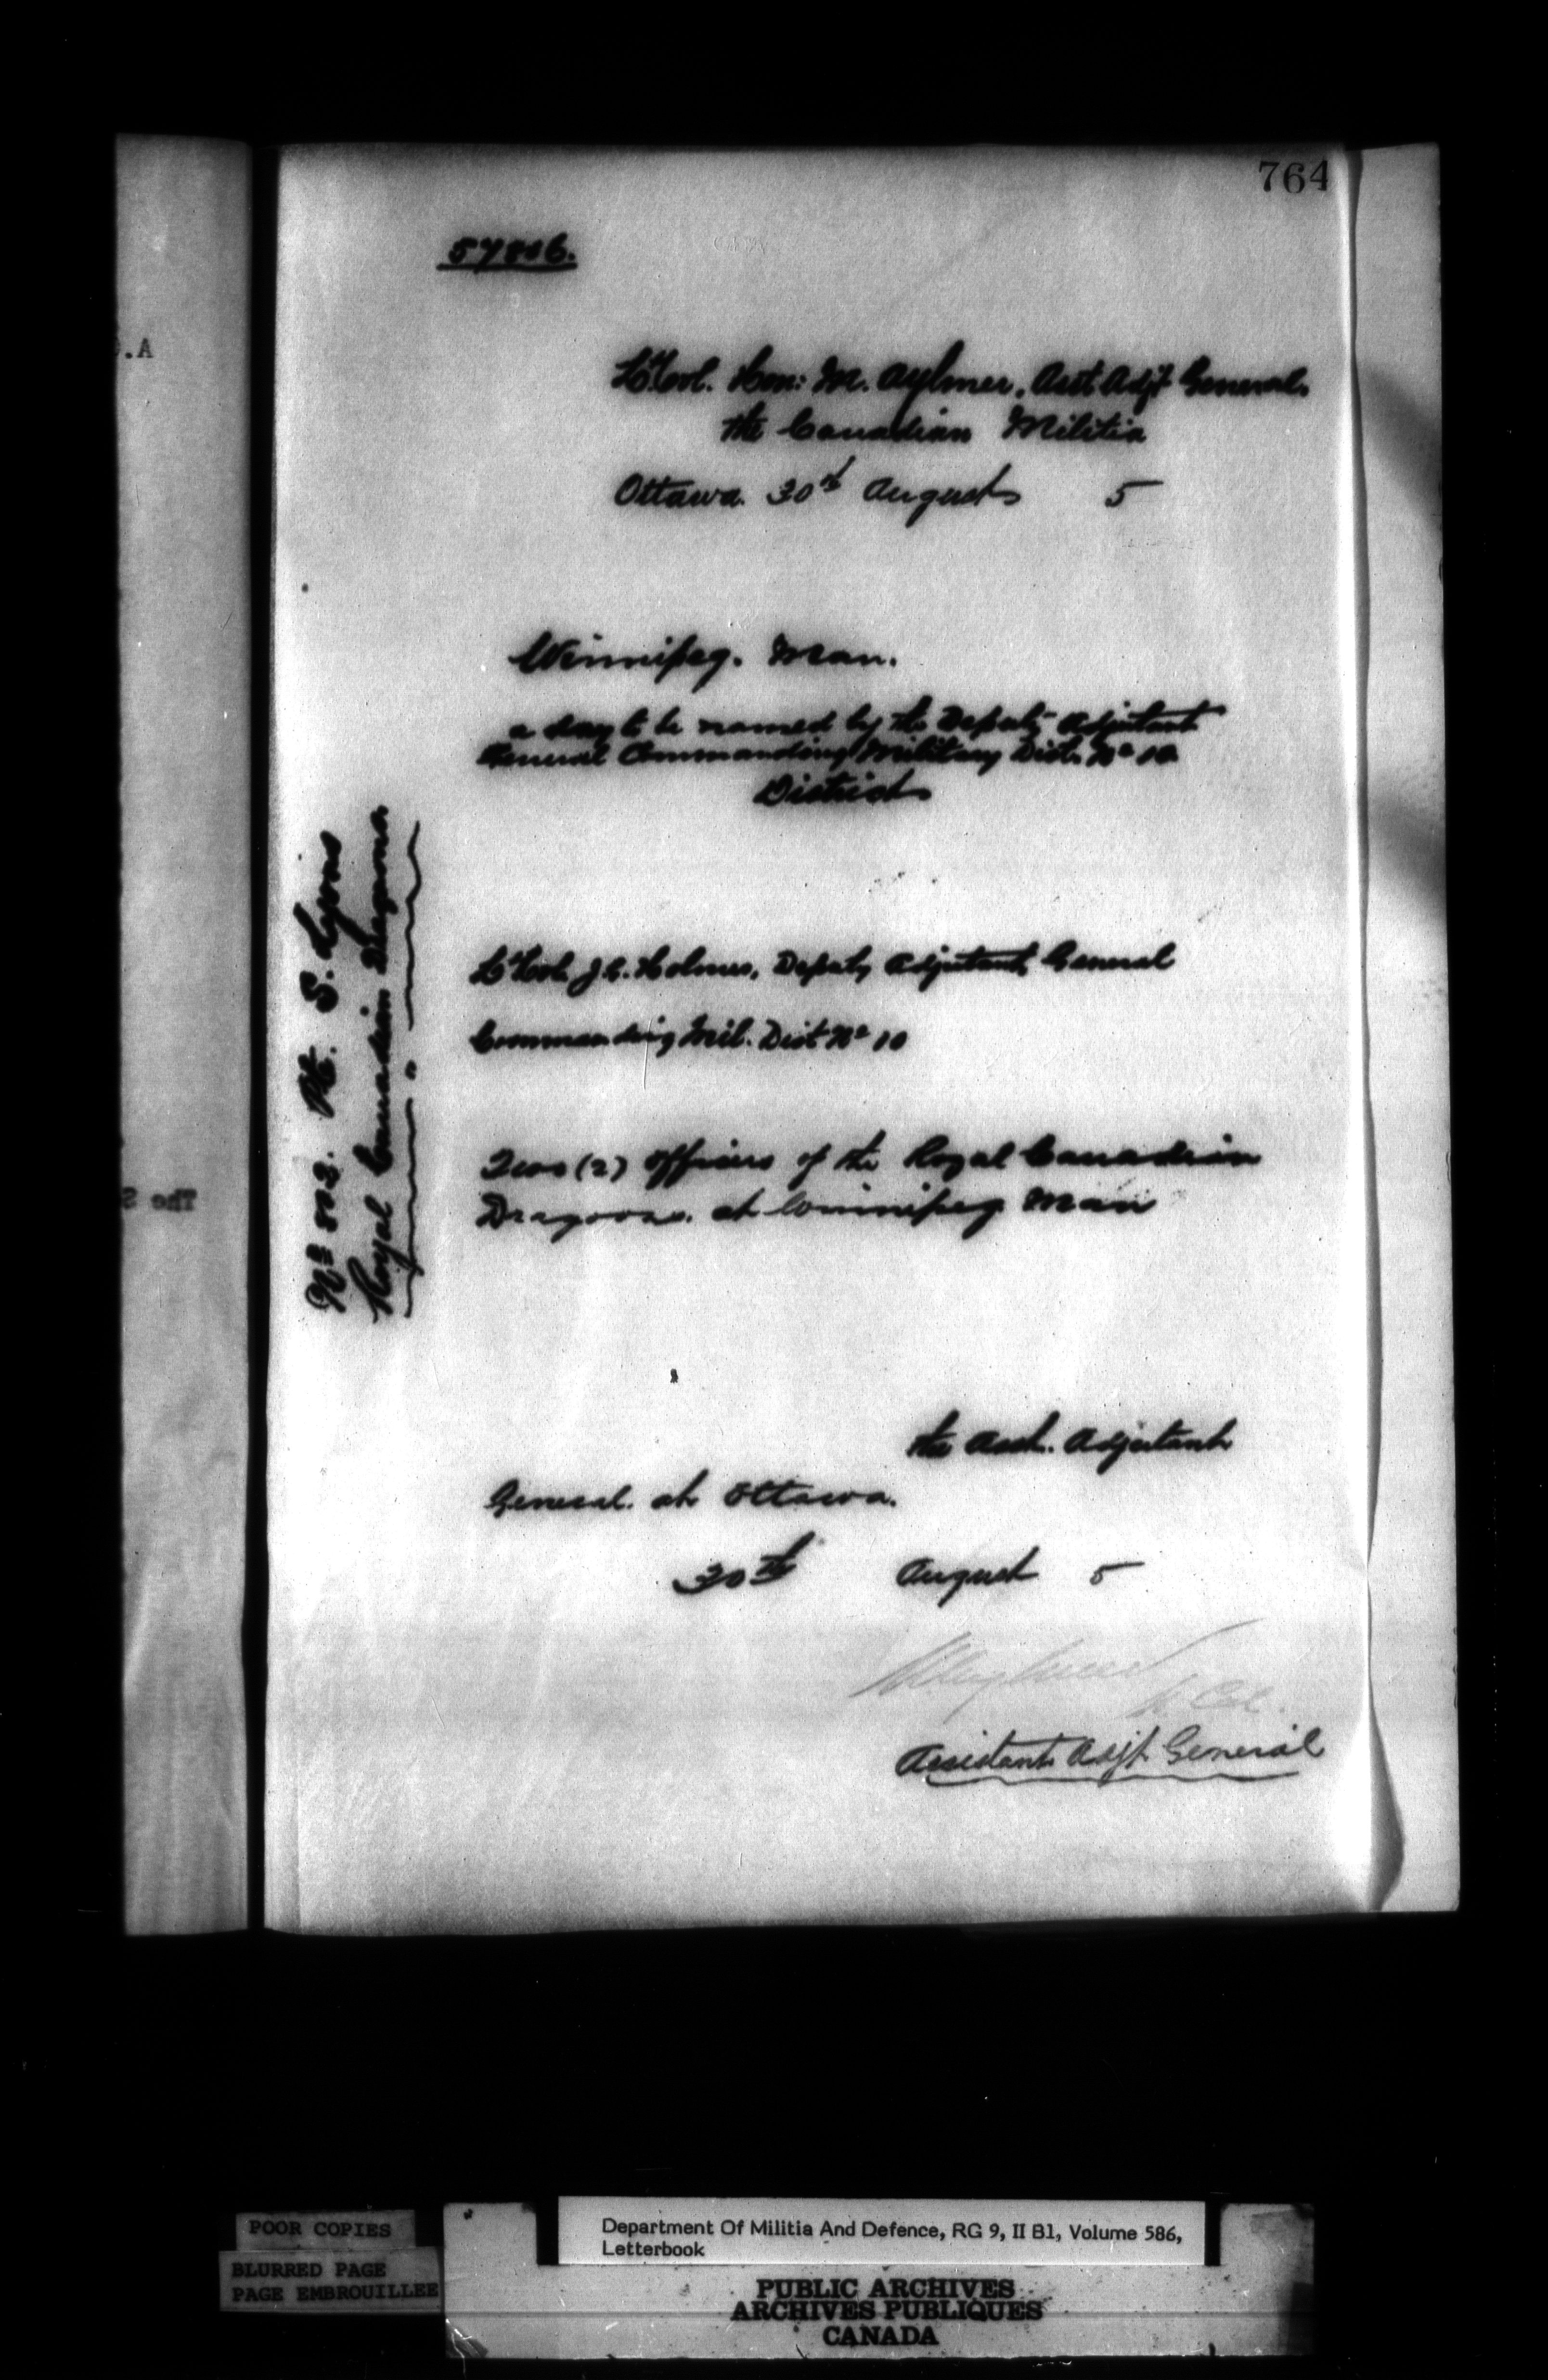 764
57806.
Lt Col. Hon: M. Aylmer, Asst Adjt General.
the Canadian Militia
Ottawa. 30th August 5
Winnipeg. Man.
a day to be named by the Deputy Adjutant
General Commanding Military Dist. No 10
District
No 803. Pte. S. Lyons
Royal Canadian Dragoons
Lt Col. J.G. Holmes, Deputy Adjutant General
Commanding Mil. Dist No 10
Two (2) Officers of the Royal Canadian
Dragoons. at Winnipeg. Man
the Asst. Adjutant
General. at Ottawa.
30th August 5
M Aylmer
Lt Col.
Assistant Adjt. General
.A
The S
POOR COPIES
BLURRED PAGE
PAGE EMBROUILLEE
Department Of Militia And Defence, RG 9, II B1, Volume 586,
Letterbook
PUBLIC ARCHIVES
ARCHIVES PUBLIQUES
CANADA